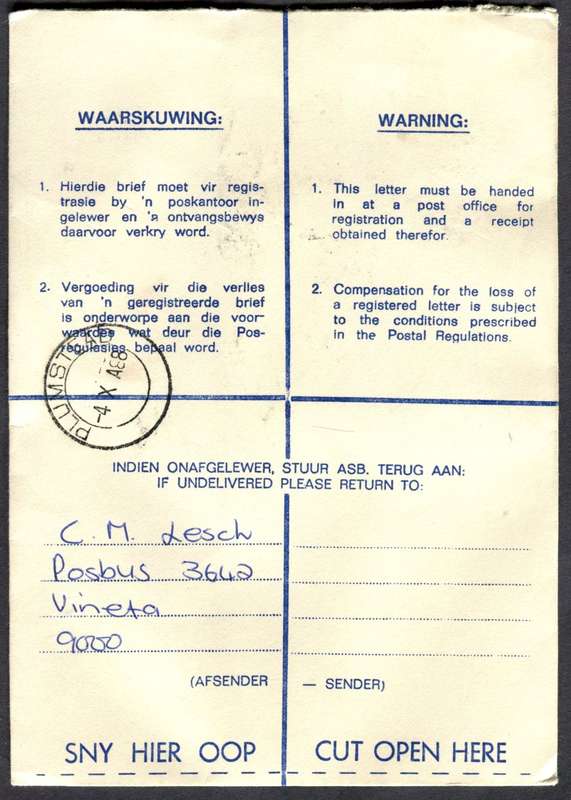 WAARSKUWING:
1. Hierdie brief moet vir regis-
trasie by 'n poskantoor in-
gelewer en 'n ontvangsbewys
daarvoor verkry word.
2. Vergoeding vir die verlies
van 'n geregistreerde brief
is onderworpe aan die voor-
waardes wat deur die Pos-
regulasies bepaal word.
WARNING:
1. This letter must be handed
in at a post office for
registration and a receipt
obtained therefor.
2. Compensation for the loss of
a registered letter is subject
to the conditions prescribed
in the Postal Regulations.
PLUMSTEAD
-4 X
INDIEN ONAFGELEWER, STUUR ASB. TERUG AAN:
IF UNDELIVERED PLEASE RETURN TO:
C. M. Lesch
Posbus 3642
Vineta
9000
(AFSENDER — SENDER)
SNY HIER OOP CUT OPEN HERE